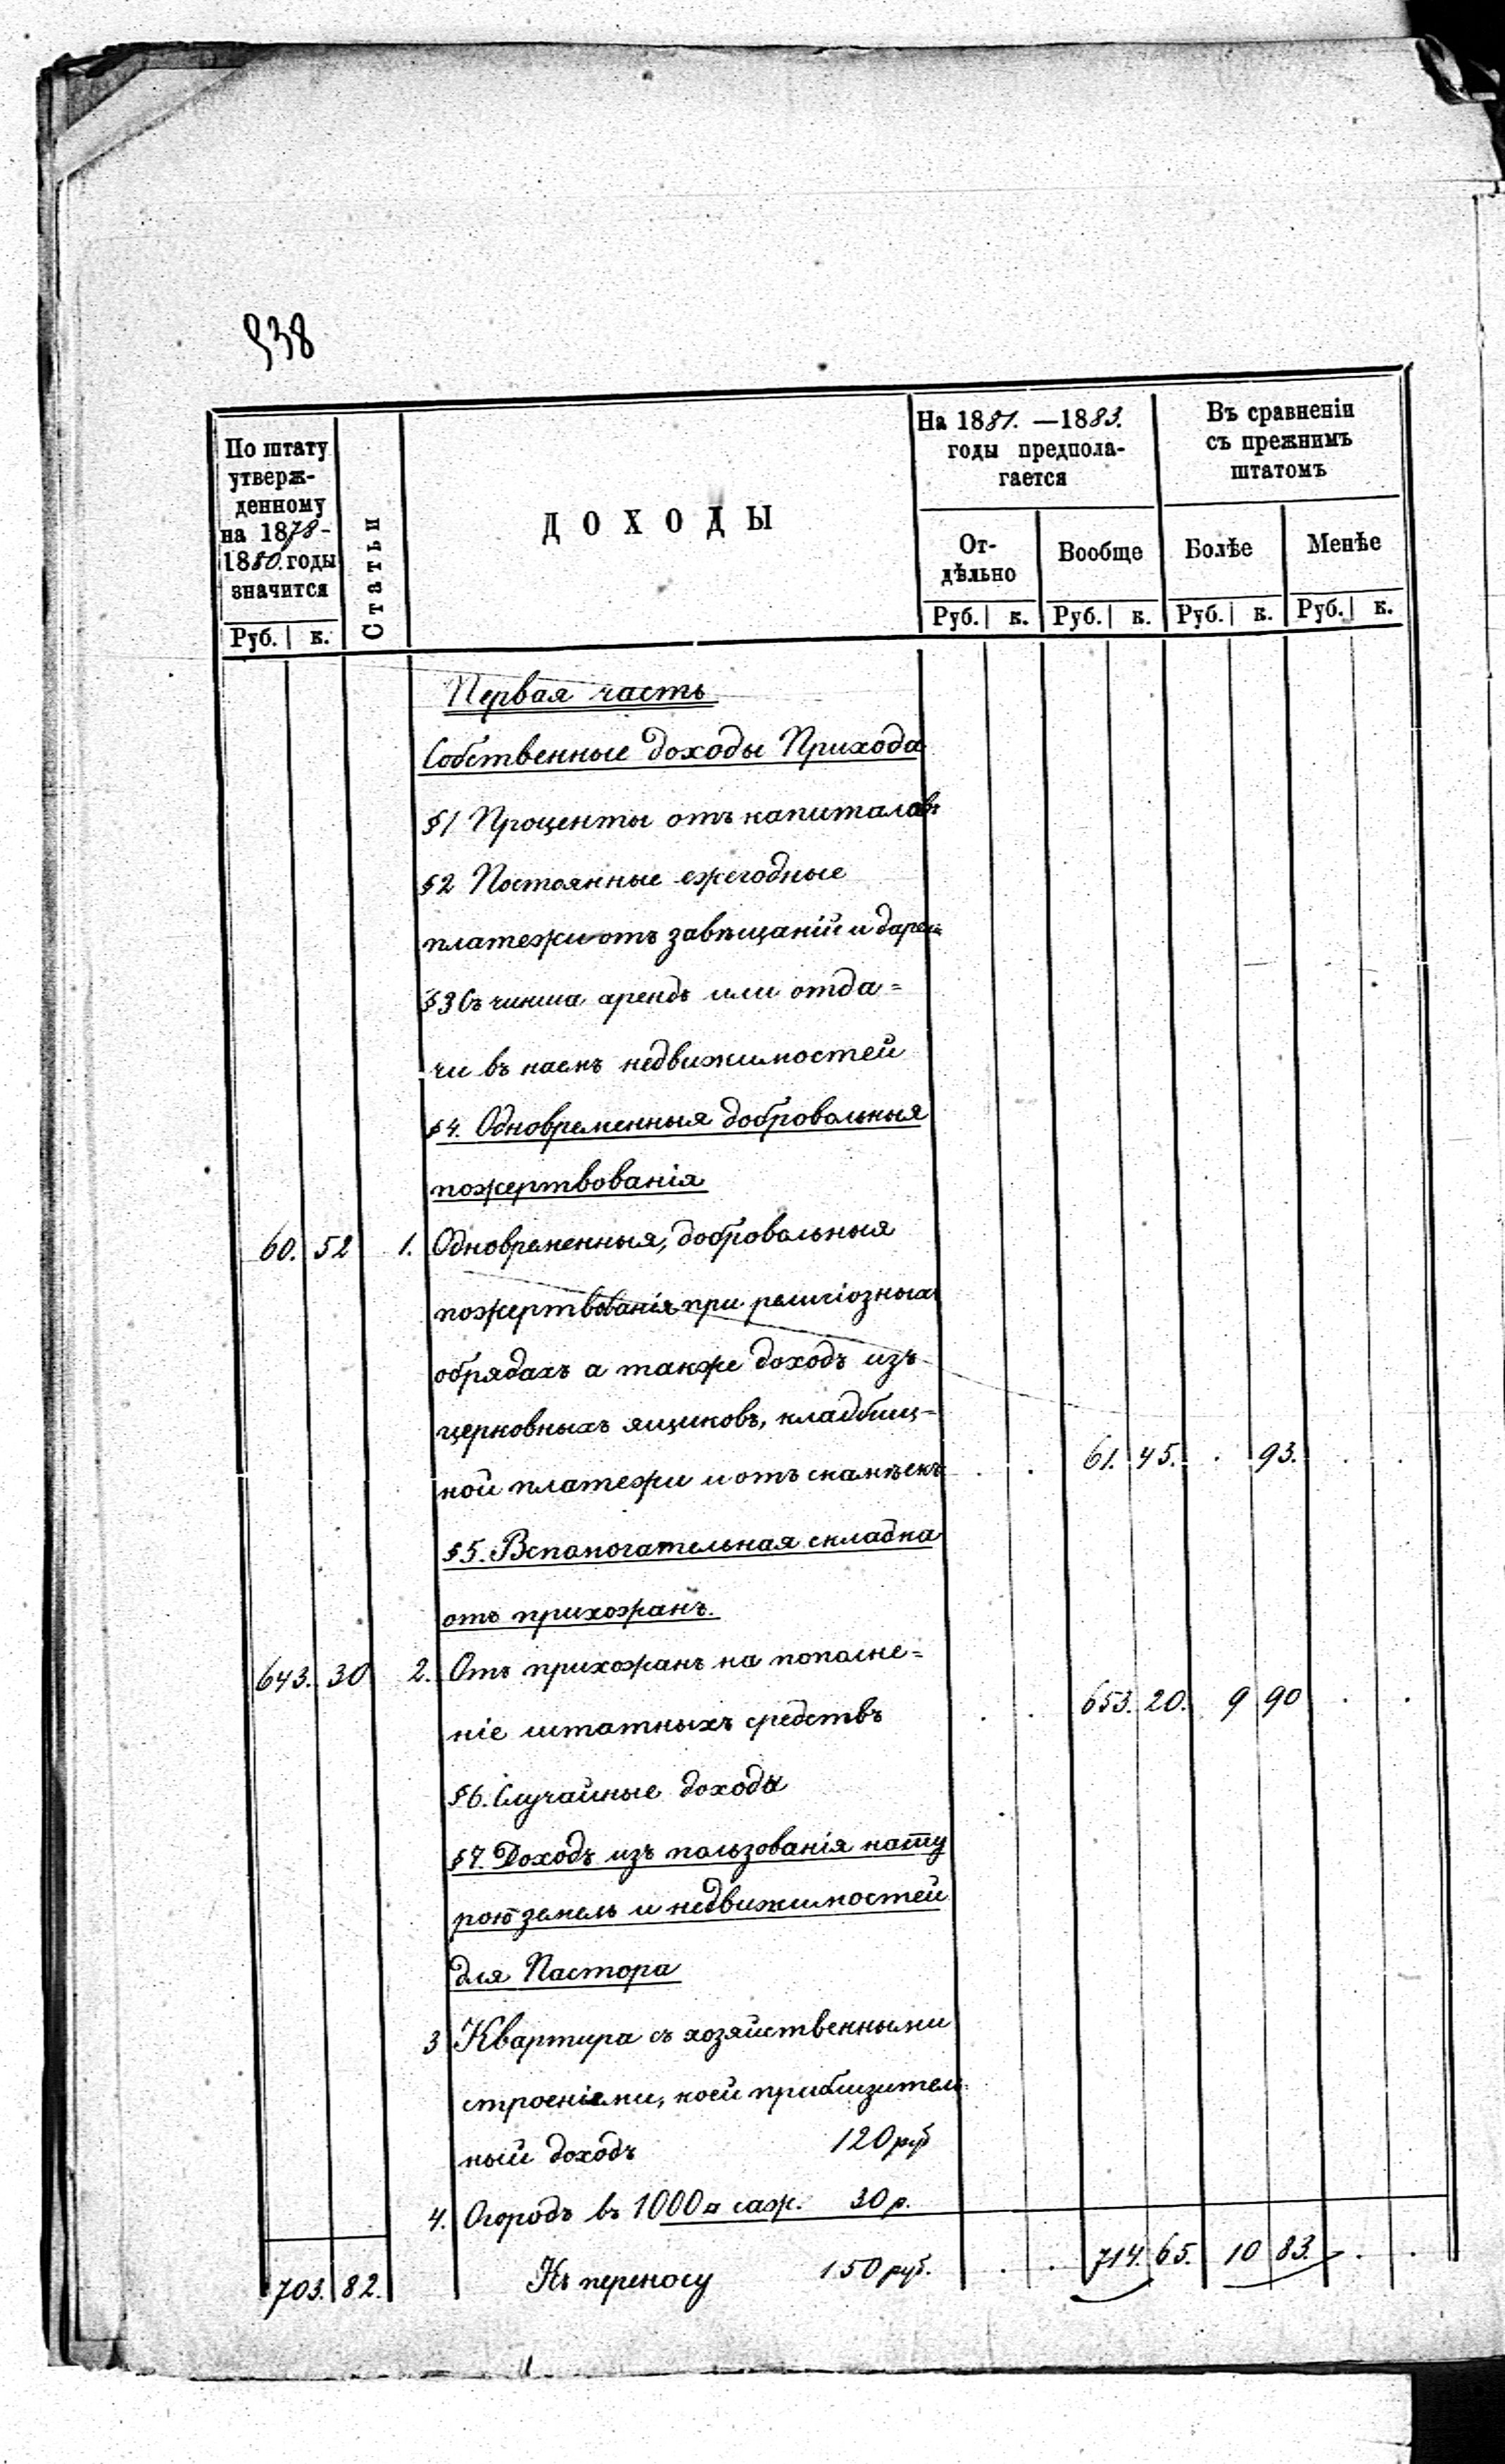 938
По штату утверж-денному на 1878-1880. годы значится
Статьи
ДОХОДЫ
На 1881. —1883. годы предпола-гается
Въ сравненіи съ прежнимъ штатомъ
От-дѣльно Вообще Болѣе Менѣе
Руб. к. Руб. к. Руб. к. Руб. к. Руб. к.
Первая часть
Собственные доходы Прихода
§1 Проценты отъ капиталовъ
§2 Постоянные ежегодные
платежи отъ завѣщаній и дарен.
§3 Съ чинша арендъ или отда=
чи въ наемъ недвижимостей
§4. Одновременныя добровольныя
пожертвованія
60. 52 1. Одновременныя, добровольныя
пожертвованія при религіозныхъ
обрядахъ а также доходъ изъ
церковныхъ ящиковъ, кладбищ-
ной платежи и отъ скамѣекъ . . 61. 45. . 93. . .
§5. Вспомогательная складка
отъ прихожанъ.
643. 30 2. Отъ прихожанъ на пополне=
ніе штатныхъ средствъ . . 653. 20. 9 90 . .
§6. Случайные доходы
§7. Доходъ изъ пользованія нату
рою земель и недвижимостей
для Пастора
3 Квартира съ хозяйственными
строеніями, коей приблизитель
ный доходъ 120 руб
4. Огородъ въ 1000 □ саж. 30 р.
703. 82. Къ переносу 150 руб. . . 714. 65. 10 83. . .